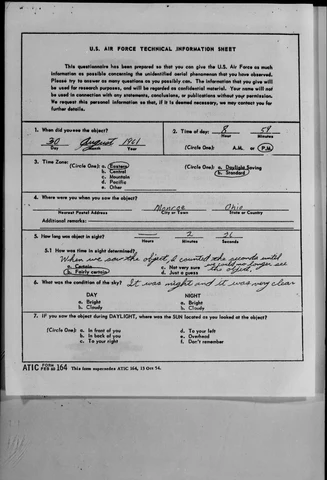 U.S. AIR FORCE TECHNICAL INFORMATION SHEET
This questionnaire has been prepared so that you can give the U.S. Air Force as much
information as possible concerning the unidentified aerial phenomenon that you have observed.
Please try to answer as many questions as you possibly can. The information that you give will
be used for research purposes, and will be regarded as confidential material. Your name will not
be used in connection with any statements, conclusions, or publications without your permission.
We request this personal information so that, if it is deemed necessary, we may contact you for
further details.
1. When did you see the object?
30 August 1961
Day Month Year
2. Time of day: 8 59
Hour Minutes
(Circle One): A.M. or P.M.
3. Time Zone:
(Circle One): a. Eastern
b. Central
c. Mountain
d. Pacific
e. Other
(Circle One): a. Daylight Saving
b. Standard
4. Where were you when you saw the object?
Monroe Ohio
Nearest Postal Address City or Town State or Country
Additional remarks:
5. How long was object in sight? — 2 26
Hours Minutes Seconds
5.1 How was time in sight determined?
When we saw the object, I counted the seconds until
we could no longer see
the object.
a. Certain
b. Fairly certain
c. Not very sure
d. Just a guess
6. What was the condition of the sky? It was night and it was very clear
DAY NIGHT
a. Bright a. Bright
b. Cloudy b. Cloudy
7. IF you saw the object during DAYLIGHT, where was the SUN located as you looked at the object?
(Circle One): a. In front of you d. To your left
b. In back of you e. Overhead
c. To your right f. Don't remember
ATIC FORM FEB 60 164 This form supersedes ATIC 164, 13 Oct 54.